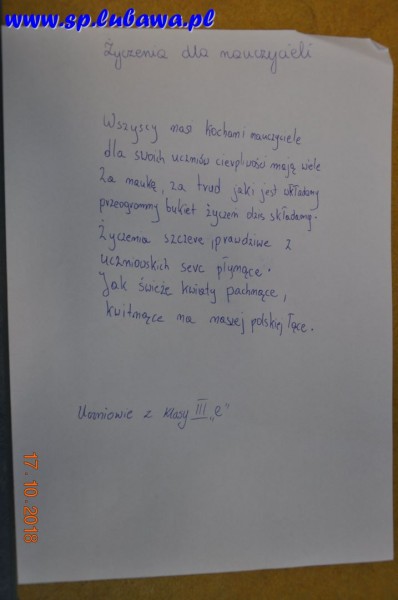 www.sp.lubawa.pl
Życzenia dla nauczycieli
Wszyscy nasi kochani nauczyciele
dla swoich uczniów cierpliwości mają wiele
Za naukę, za trud jaki jest wkładany
przeogromny bukiet życzeń dziś składamy.
Życzenia szczere, prawdziwe z
uczniowskich serc płynące.
Jak świeże kwiaty pachnące,
kwitnące na naszej polskiej łące.
Uczniowie z klasy III „e"
17.10.2018